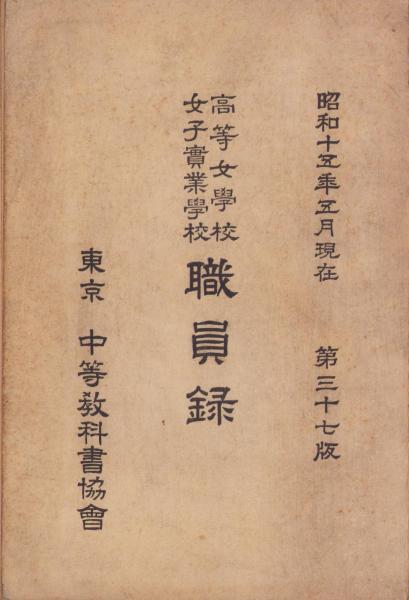 昭和十五年五月現在 第三十七版
高等女學校
女子實業學校
職員録
東京 中等敎科書協會